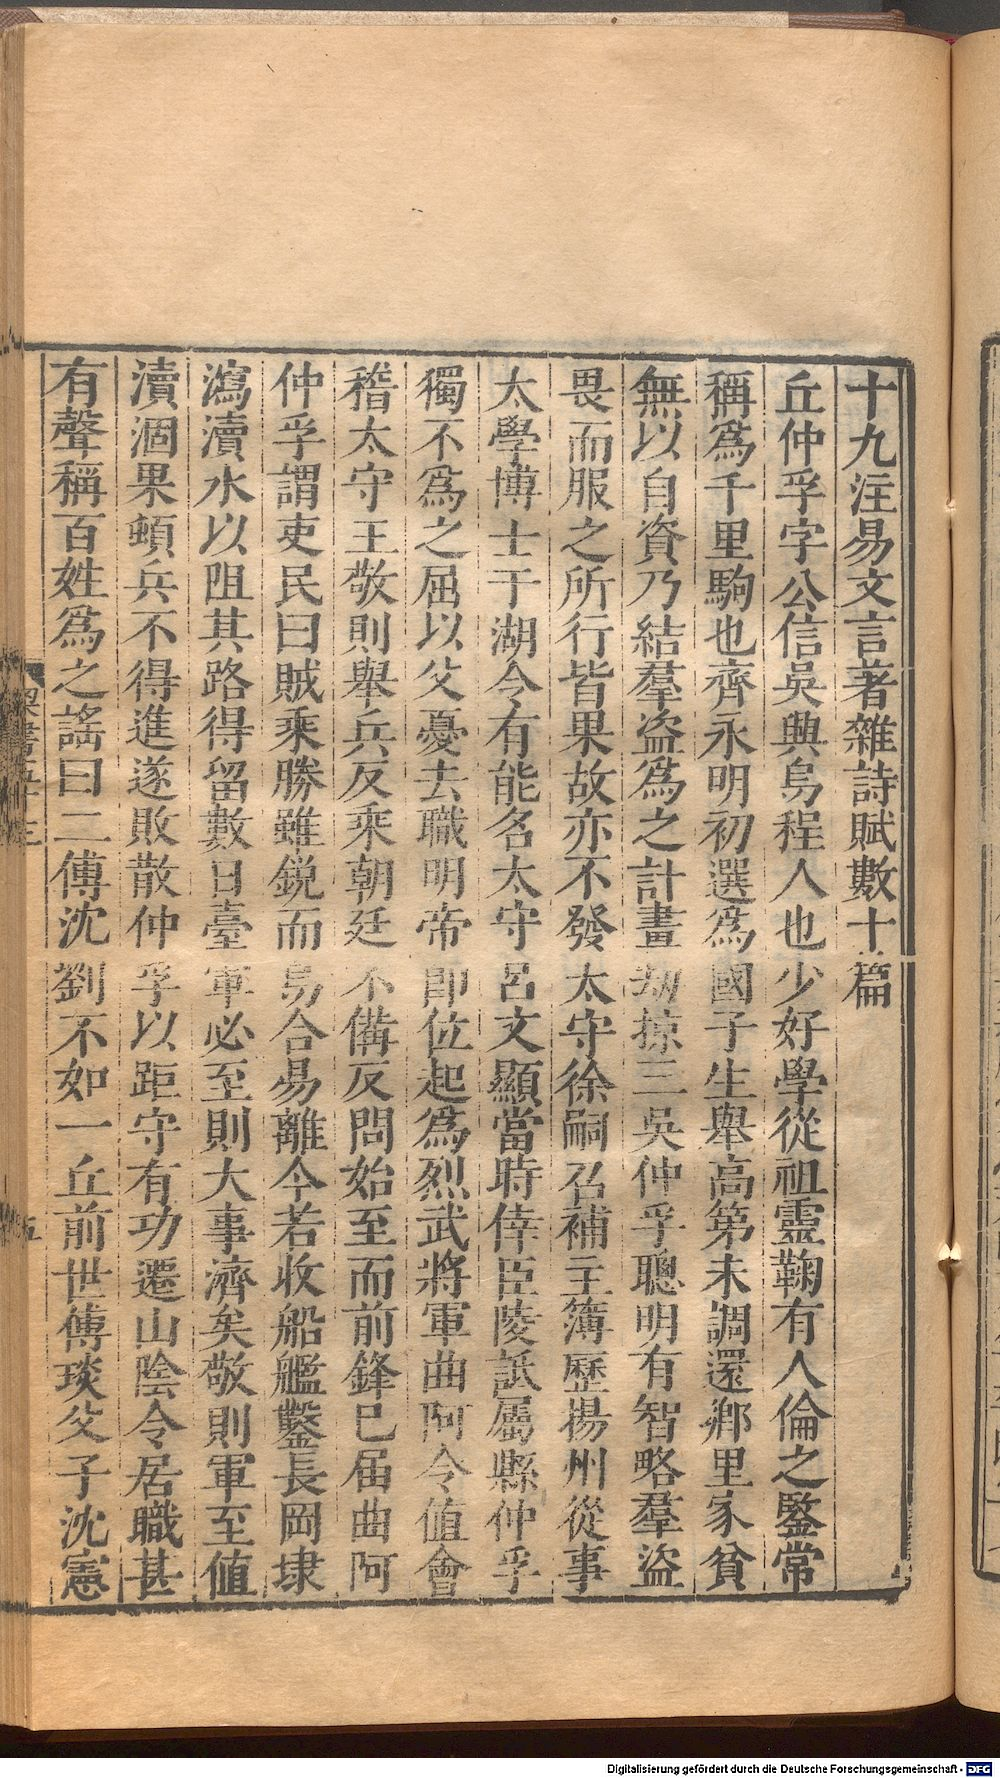 十九注易文言著雜詩賦數十篇
丘仲孚字公信吳興烏程人也少好學從祖靈鞠有人倫之鑒常
稱爲千里駒也齊永明初選爲國子生舉高第未調還鄉里家貧
無以自資乃結羣盜爲之計畫劫掠三吳仲孚聰明有智略羣盜
畏而服之所行皆果故亦不發太守徐嗣召補主簿歷揚州從事
太學博士于湖令有能名太守呂文顯當時倖臣陵詆屬縣仲孚
獨不爲之屈以父憂去職明帝即位起爲烈武將軍曲阿令値會
稽太守王敬則舉兵反乘朝廷不備反問始至而前鋒已届曲阿
仲孚謂吏民曰賊乘勝雖銳而易合易離今若收船艦鑿長岡埭
瀉瀆水以阻其路得留數日臺軍必至則大事濟矣敬則軍至値
瀆涸果頓兵不得進遂敗散仲孚以距守有功遷山陰令居職甚
有聲稱百姓爲之謠曰二傅沈劉不如一丘前世傅琰父子沈憲
梁書五十三
五
Digitalisierung gefördert durch die Deutsche Forschungsgemeinschaft - DFG